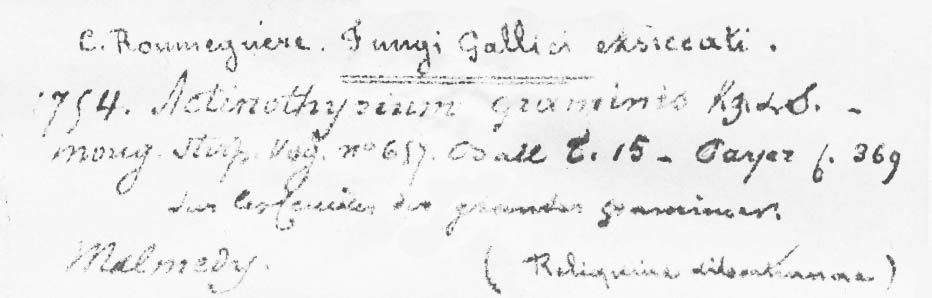 C. Roumeguere. Fungi Gallici exsiccati.
1754. Actinothyrium graminis Kz. & S. –
moug. Stirp. Vog. nº 657. t. 15 – Payer f. 369
sur les feuilles des grandes graminees.
Malmedy. (Reliquiae Libertianae)